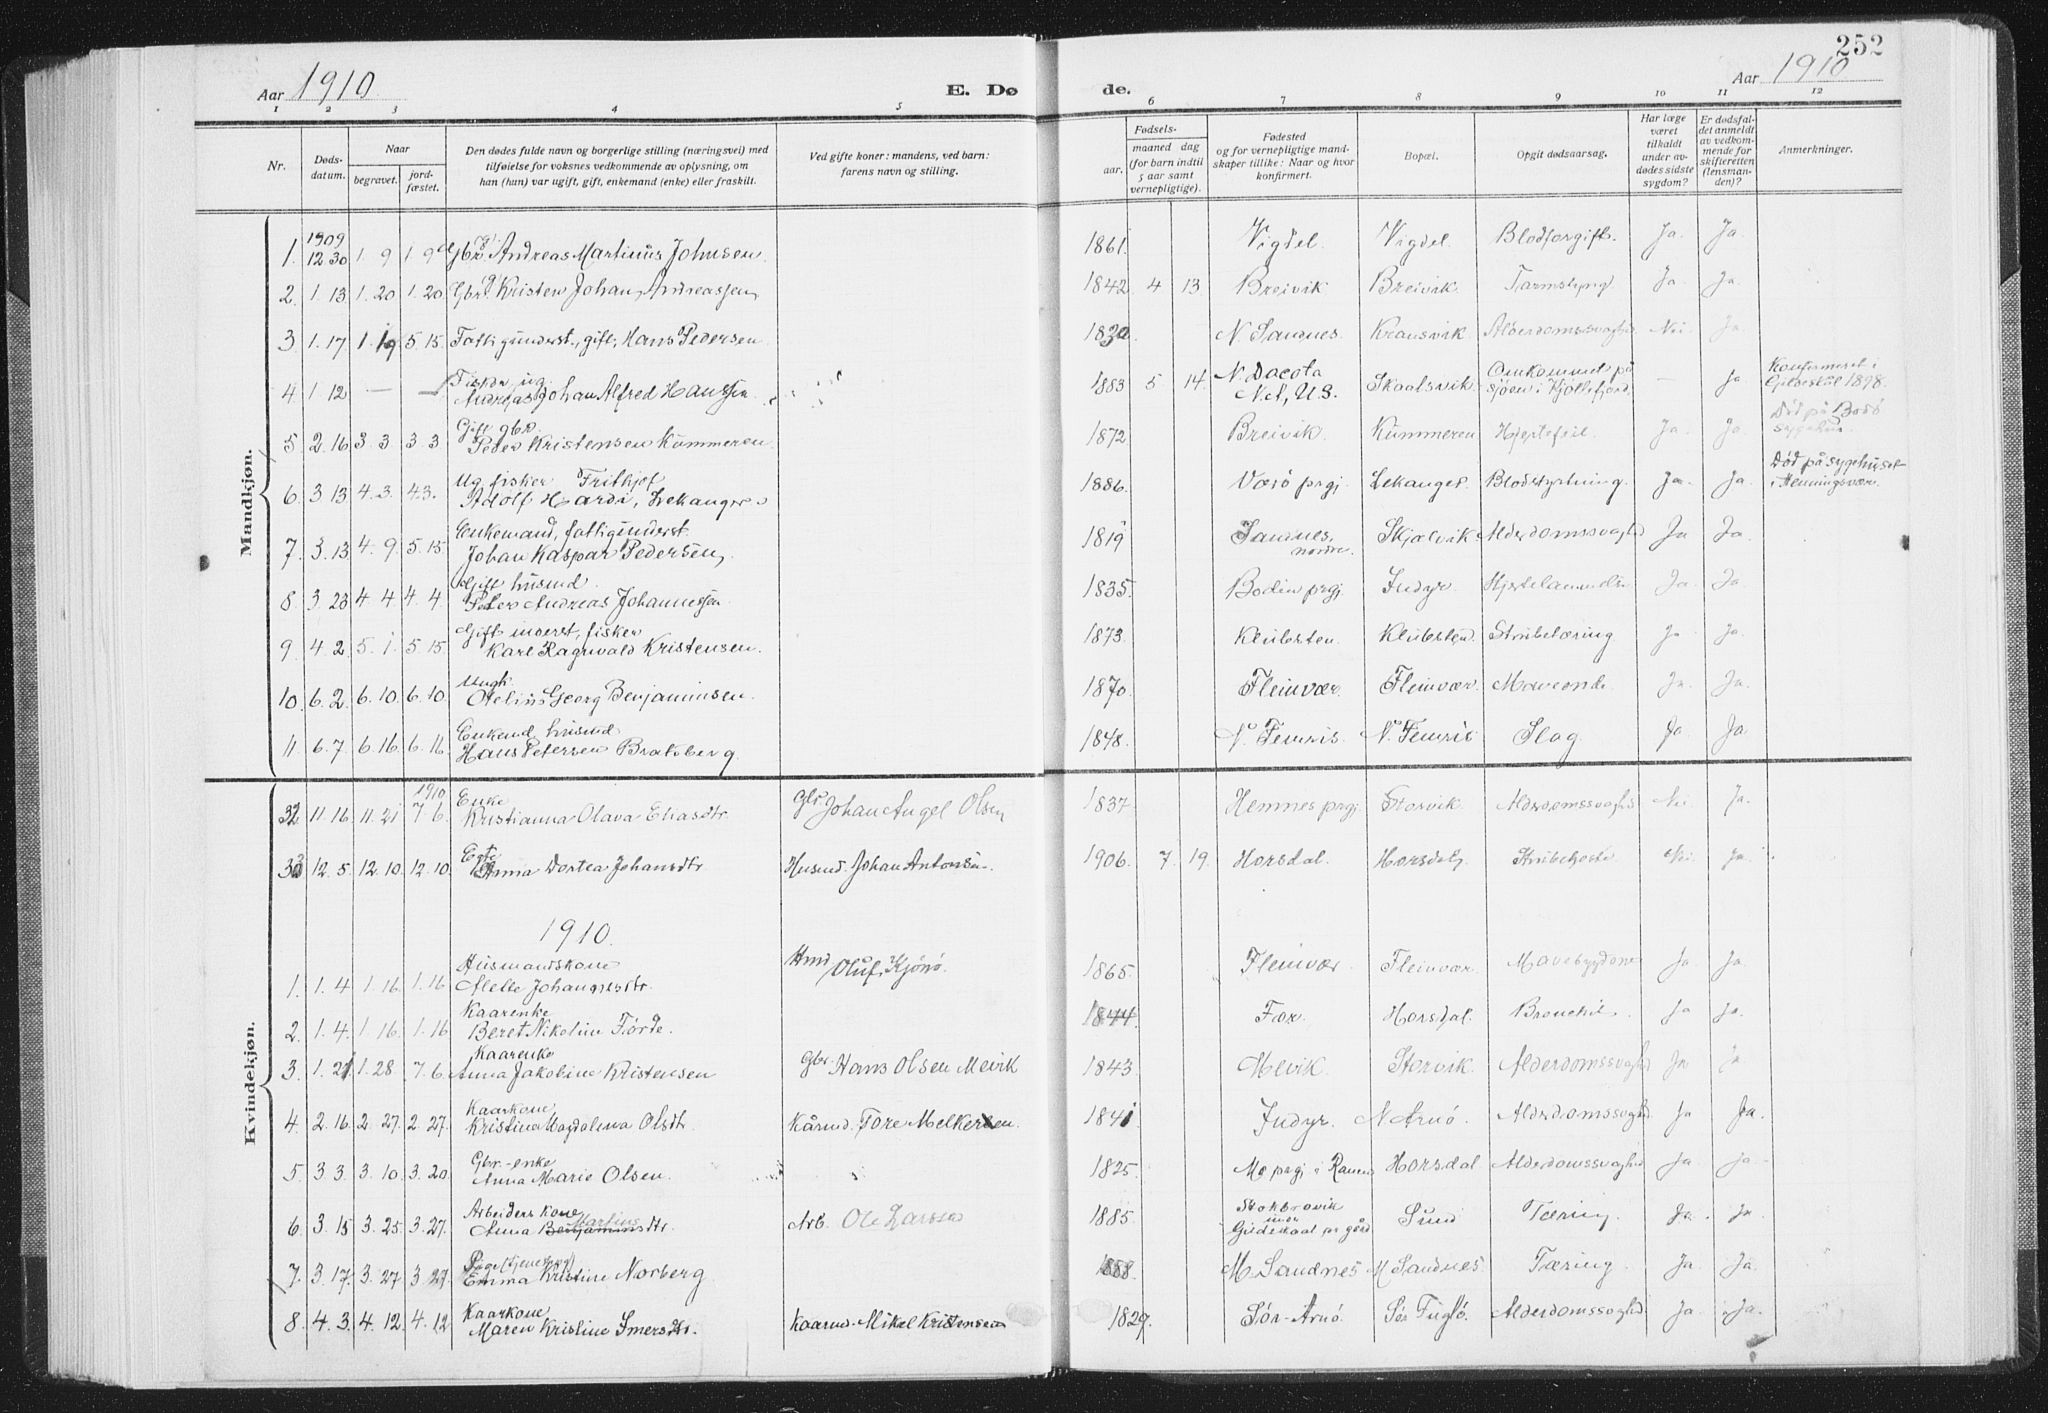 252
Aar 1910 E. Dø de. Aar 1910
1 2 3 4 5 6 7 8 9 10 11 12
Nr. Døds-datum. Naar begravet. jord-fæstet. Den dødes fulde navn og borgerlige stilling (næringsvei) med tilføielse for voksnes vedkommende av oplysning, om han (hun) var ugift, gift, enkemand (enke) eller fraskilt. Ved gifte koner: mandens, ved barn: farens navn og stilling. Fødsels- aar. maaned dag (for barn indtil 5 aar samt vernepligtige). Fødested og for vernepligtige mand-skaper tillike: Naar og hvor konfirmert. Bopæl. Opgit dødsaarsag. Har læge været tilkaldt under av-dødes sidste sygdom? Er dødsfal-det anmeldt av vedkom-mende for skifteretten (lensman-den)? Anmerkninger.
Mandkjøn.
1. 1909 12 30 1. 9 1. 9 Gbr. Andreas Martinus Johnsen. 1861. Vigdel. Vigdel. Blodforgift. Ja. Ja.
2. 1. 13. 1. 20 1. 20 Gbr. Kristen Johan Andreassen 1842 4 13. Breivik Breivik. Ja. Ja.
3. 1. 17. 1. 19 5. 15. Fattigunderst., gift, Hans Pedersen 1830. N. Sandnes. Kransvik. Alderdomssvaghed Nei Ja
4 1 12 — — Fisker, ug. Andreas Johan Alfred Hanssen. 1883 5 14. N. Dacota N.A, U.S. Skaalsvik Omkommet på sjøen i Kjøllefjord. — Ja Konfirmeret i Gildeskål 1898.
5 2. 16. 3. 3. 3. 3 Gift gbr. Peder Kristensen Kummeren 1872 Breivik. Kummeren Hjertefeil. Ja. Ja. Død på Bodø sygehus.
6. 3 13 4. 3. 4 3. Ug. fisker Fritkjof Adolf Hardi, Lekanger. 1886. Værø prgj. Lekanger. Blodstyrtning. Ja. Ja. Død på sygehuset i Henningsvær.
7. 3. 13. 4. 9. 5. 15 Enkemand, fattigunderst. Johan Kaspar Pedersen, 1819 Sandnes, nordre. Skjelvik Alderdomssvaghed Ja Ja.
8 3. 23 4. 4. 4. 4 Gift husmd. Peder Andreas Johannessen. 1835. Bodin prgj. Indyr Ja. Ja.
9. 4. 2. 5. 1. 5. 15 Gift inderst, fisker Karl Ragnvald Kristensen. 1873. Klubsten. Klubsten. Strubetæring Ja. Ja.
10. 6. 2. 6. 10. 6. 10. Ungk. Otelius Georg Benjaminsen. 1870. Fleinvær. Fleinvær. Maveonde. Ja. Ja.
11. 6. 7. 6. 16. 6. 16. Enkemd. husmd Hans Petersen Bratsberg. 1848. N. Femris. N. Femris Slag. Ja Ja
Kvindekjøn.
32 11. 16. 11. 21 1910 7. 6. Enke Kristianna Olava Eliasdtr. Gbr. Johan Angel Olsen 1837. Hemnes prgj. Storvik. Alderdomssvaghed Nei Ja.
33 12. 5. 12. 10. 12. 10. Egte Anna Dortea Johansdtr. Husmd. Johan Antonsen. 1906. 7. 19. Horsdal. Horsdal. Strubehoste Nei Ja.
1910.
1. 1. 4 1. 16. 1. 16 Husmandskone Alette Johannesdtr. Hmd Oluf Kjönö. 1865. Fleinvær. Fleinvær. Ja. Ja.
2. 1. 4. 1. 16 1. 16 Kaarenke Beret Nikoline Förde. 1844. For Horsdal. Bronchit. Ja Ja.
3. 1. 21 1. 28 7. 6. Kaarenke Anna Jakobine Kristensen Gbr. Hans Olsen Mevik 1843. Mevik. Storvik. Alderdomssvaghed Ja Ja
4. 2. 16. 2. 27. 2. 27. Kaarkone Kristina Magdalena Olsdtr. Kårmd. Tore Melkersen. 1841. Indyr. N. Arnö. Alderdomssvaghed Ja Ja.
5 3. 3. 3. 10 3. 20 Gbr.-enke Anna Marie Olsen. 1825. Mo prgj. i Ranen Horsdal Alderdomssvaghed Ja Ja
6. 3. 15 3. 25 3. 27. Arbeiders kone Anna Benjaminsdtr. Martins Arb. Ole Larsen 1885. Gildeskaal pr. gård Sund Tæring. Ja. Ja.
7. 3. 17. 3. 27. 3. 27. Pige (tjenestepige) Emma Kristine Norberg 1888. M. Sandnes M. Sandnes Tæring. Ja Ja.
8 4. 3. 4. 12. 4. 12. Kaarkone Maren Kristine Smersdtr. Kaarmd. Mikel Kristensen 1829. Sör-Arnö. Sör Fuglö. Alderdomssvaghed Ja. Ja.